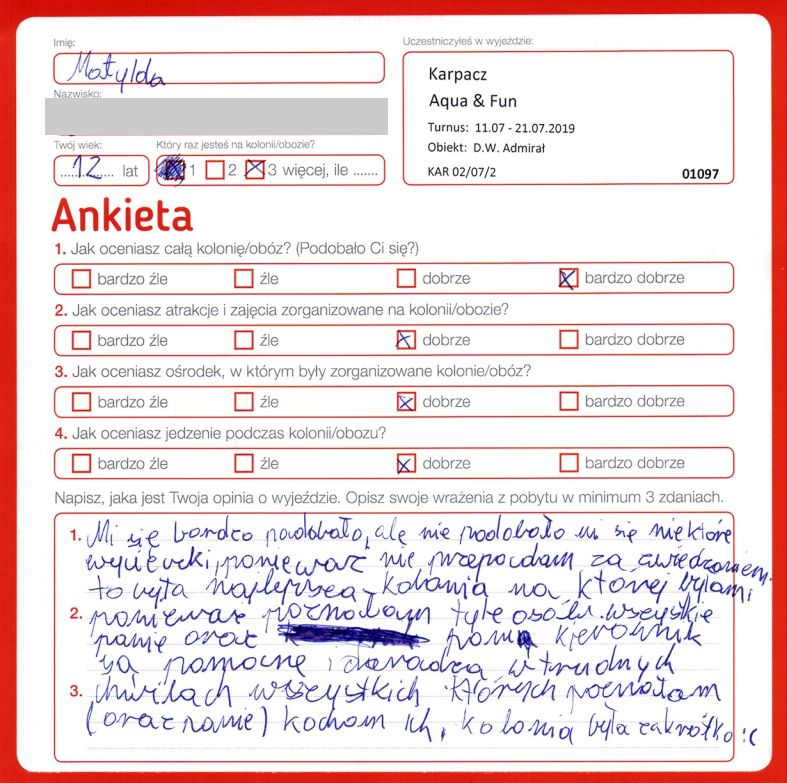 Imię:
Matylda
Nazwisko:
Twój wiek:
12 lat
Który raz jesteś na kolonii/obozie?
1 2 3 więcej, ile .......
Uczestniczyłeś w wyjeździe:
Karpacz
Aqua & Fun
Turnus: 11.07 - 21.07.2019
Obiekt: D.W. Admirał
KAR 02/07/2 01097
Ankieta
1. Jak oceniasz całą kolonię/obóz? (Podobało Ci się?)
bardzo źle źle dobrze bardzo dobrze
2. Jak oceniasz atrakcje i zajęcia zorganizowane na kolonii/obozie?
bardzo źle źle dobrze bardzo dobrze
3. Jak oceniasz ośrodek, w którym były zorganizowane kolonie/obóz?
bardzo źle źle dobrze bardzo dobrze
4. Jak oceniasz jedzenie podczas kolonii/obozu?
bardzo źle źle dobrze bardzo dobrze
Napisz, jaka jest Twoja opinia o wyjeździe. Opisz swoje wrażenia z pobytu w minimum 3 zdaniach.
1. Mi się bardzo podobało, ale nie podobało mi się niektóre
wycieczki, ponieważ nie przepadam za zwiedzaniem.
to była najlepsza kolonia na której byłam,
2. ponieważ poznałam tyle osób. wszyskie
panie oraz pani kierownik
są pomocne i doradzą w trudnych
3. chwilach wszystkich których poznałam
(oraz panie) kocham ich, kolonia była za krótko :(